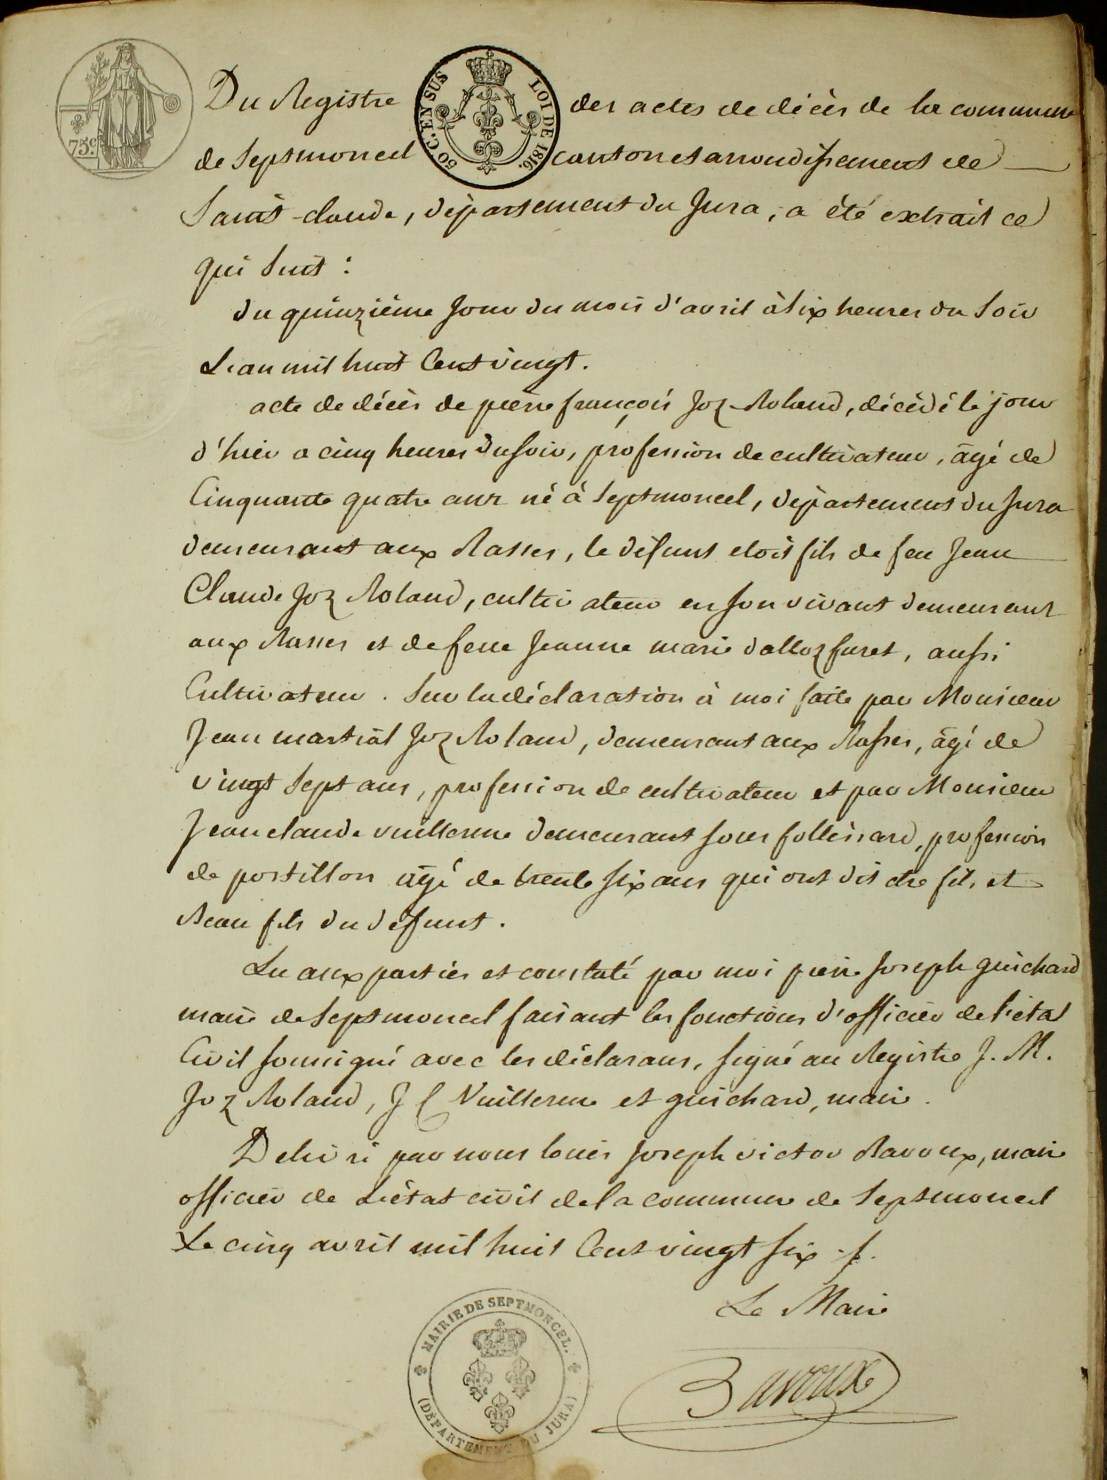 75c
50 C. EN SUS LOI DE 1816.
Du Registre des actes de décès de la commune
de Septmoncel canton et arrondissement de
Saint-claude, département du Jura, a été extrait ce
qui suit :
du quinzième jour du mois d'avril à six heures du soir
L'an mil huit Cent vingt.
acte de décès de pierre françois Joz-Roland, décédé le jour
d'hier a cinq heures du soir, profession de cultivateur, âgé de
Cinquante quatre ans né à Septmoncel, département du Jura
demeurant aux Rasses, le défunt etoit fils de feu Jean
Claude Joz Roland, cultivateur en son vivant demeurant
aux Rasses et de feue Jeanne marie dalloz furet, aussi
Cultivateur. Sur la déclaration à moi faite par Monsieur
Jean martial Joz Roland, demeurant aux Rasses, âgé de
vingt Sept ans, profession de cultivateur et par Monsieur
Jean claude vuillerme demeurant sous follissard, profession
de postillon âgé de trente six ans qui ont dit etre fils et
Beau fils du défunt.
Lu aux parties et constaté par moi pierre Joseph guichard
maire de Septmoncel faisant les fonctions d'officier de l'état
Civil soussigné avec les déclarans, signé au Registre J. M.
Joz Roland, J C Vuillerme et guichard, maire.
Delivré par nous louis Joseph victor Bavoux, maire
officier de L'état civil de la commune de Septmoncel
Le cinq avril mil huit Cent vingt six
Le Maire
Bavoux
MAIRIE DE SEPTMONCEL.
(DÉPARTEMENT DU JURA)